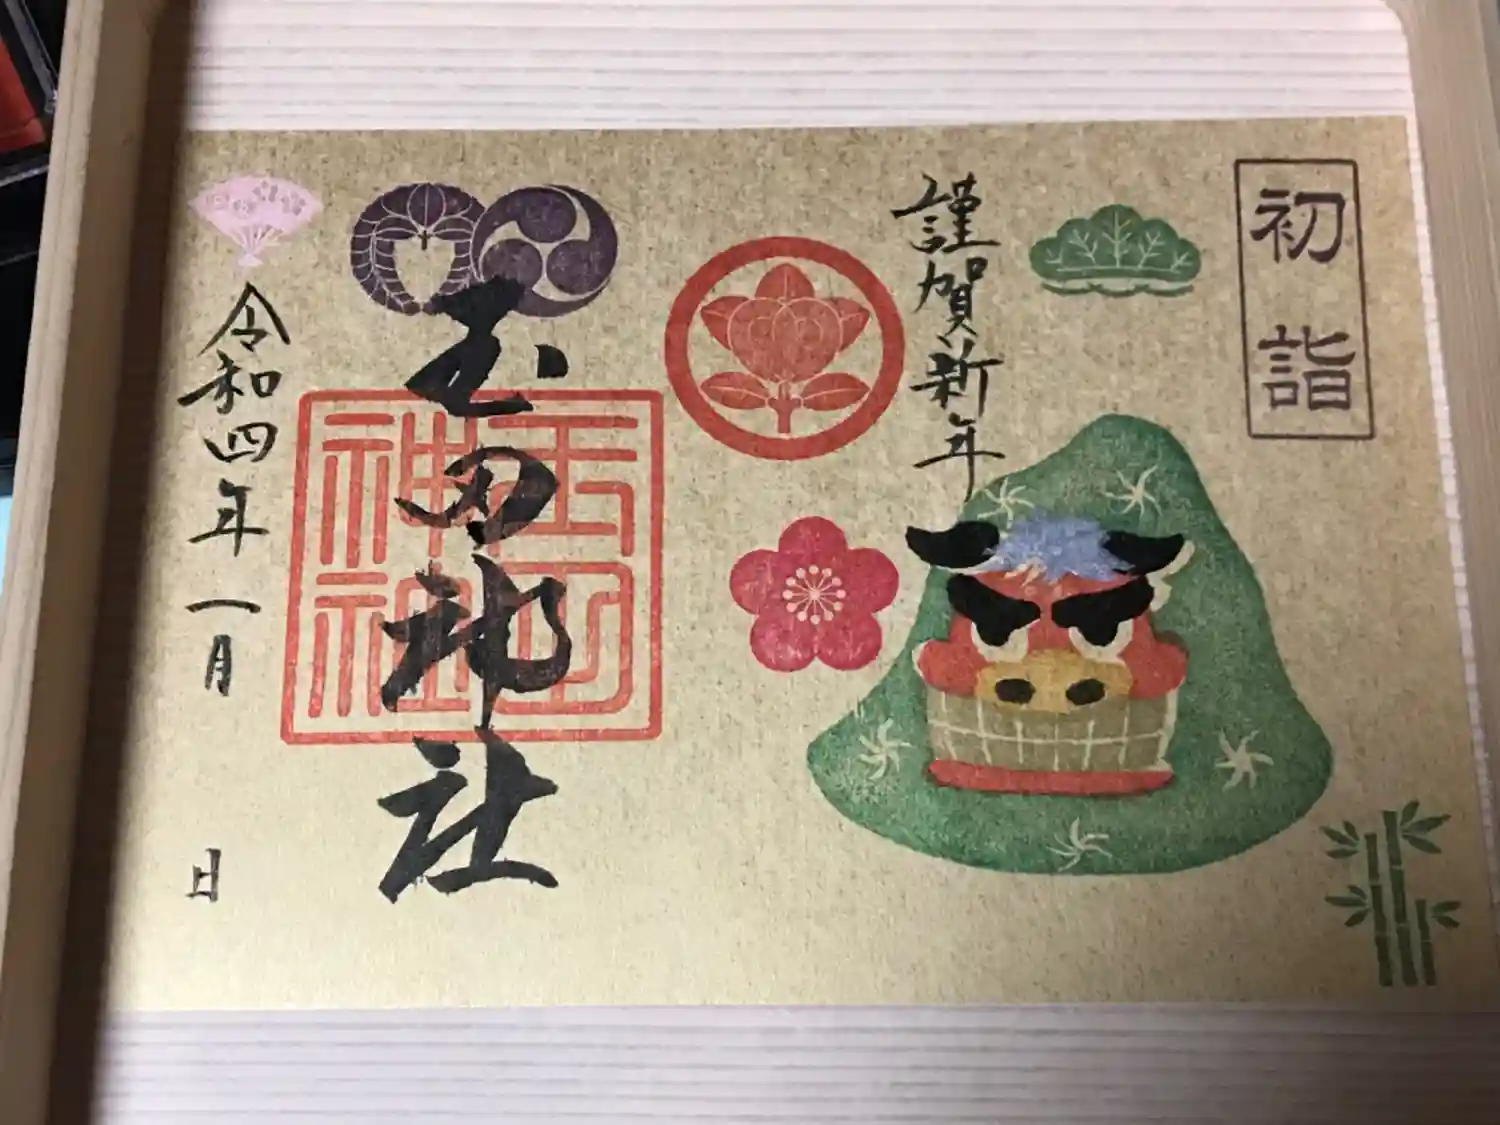 初詣
謹賀新年
玉田神社
玉田
神社
令和四年一月 日